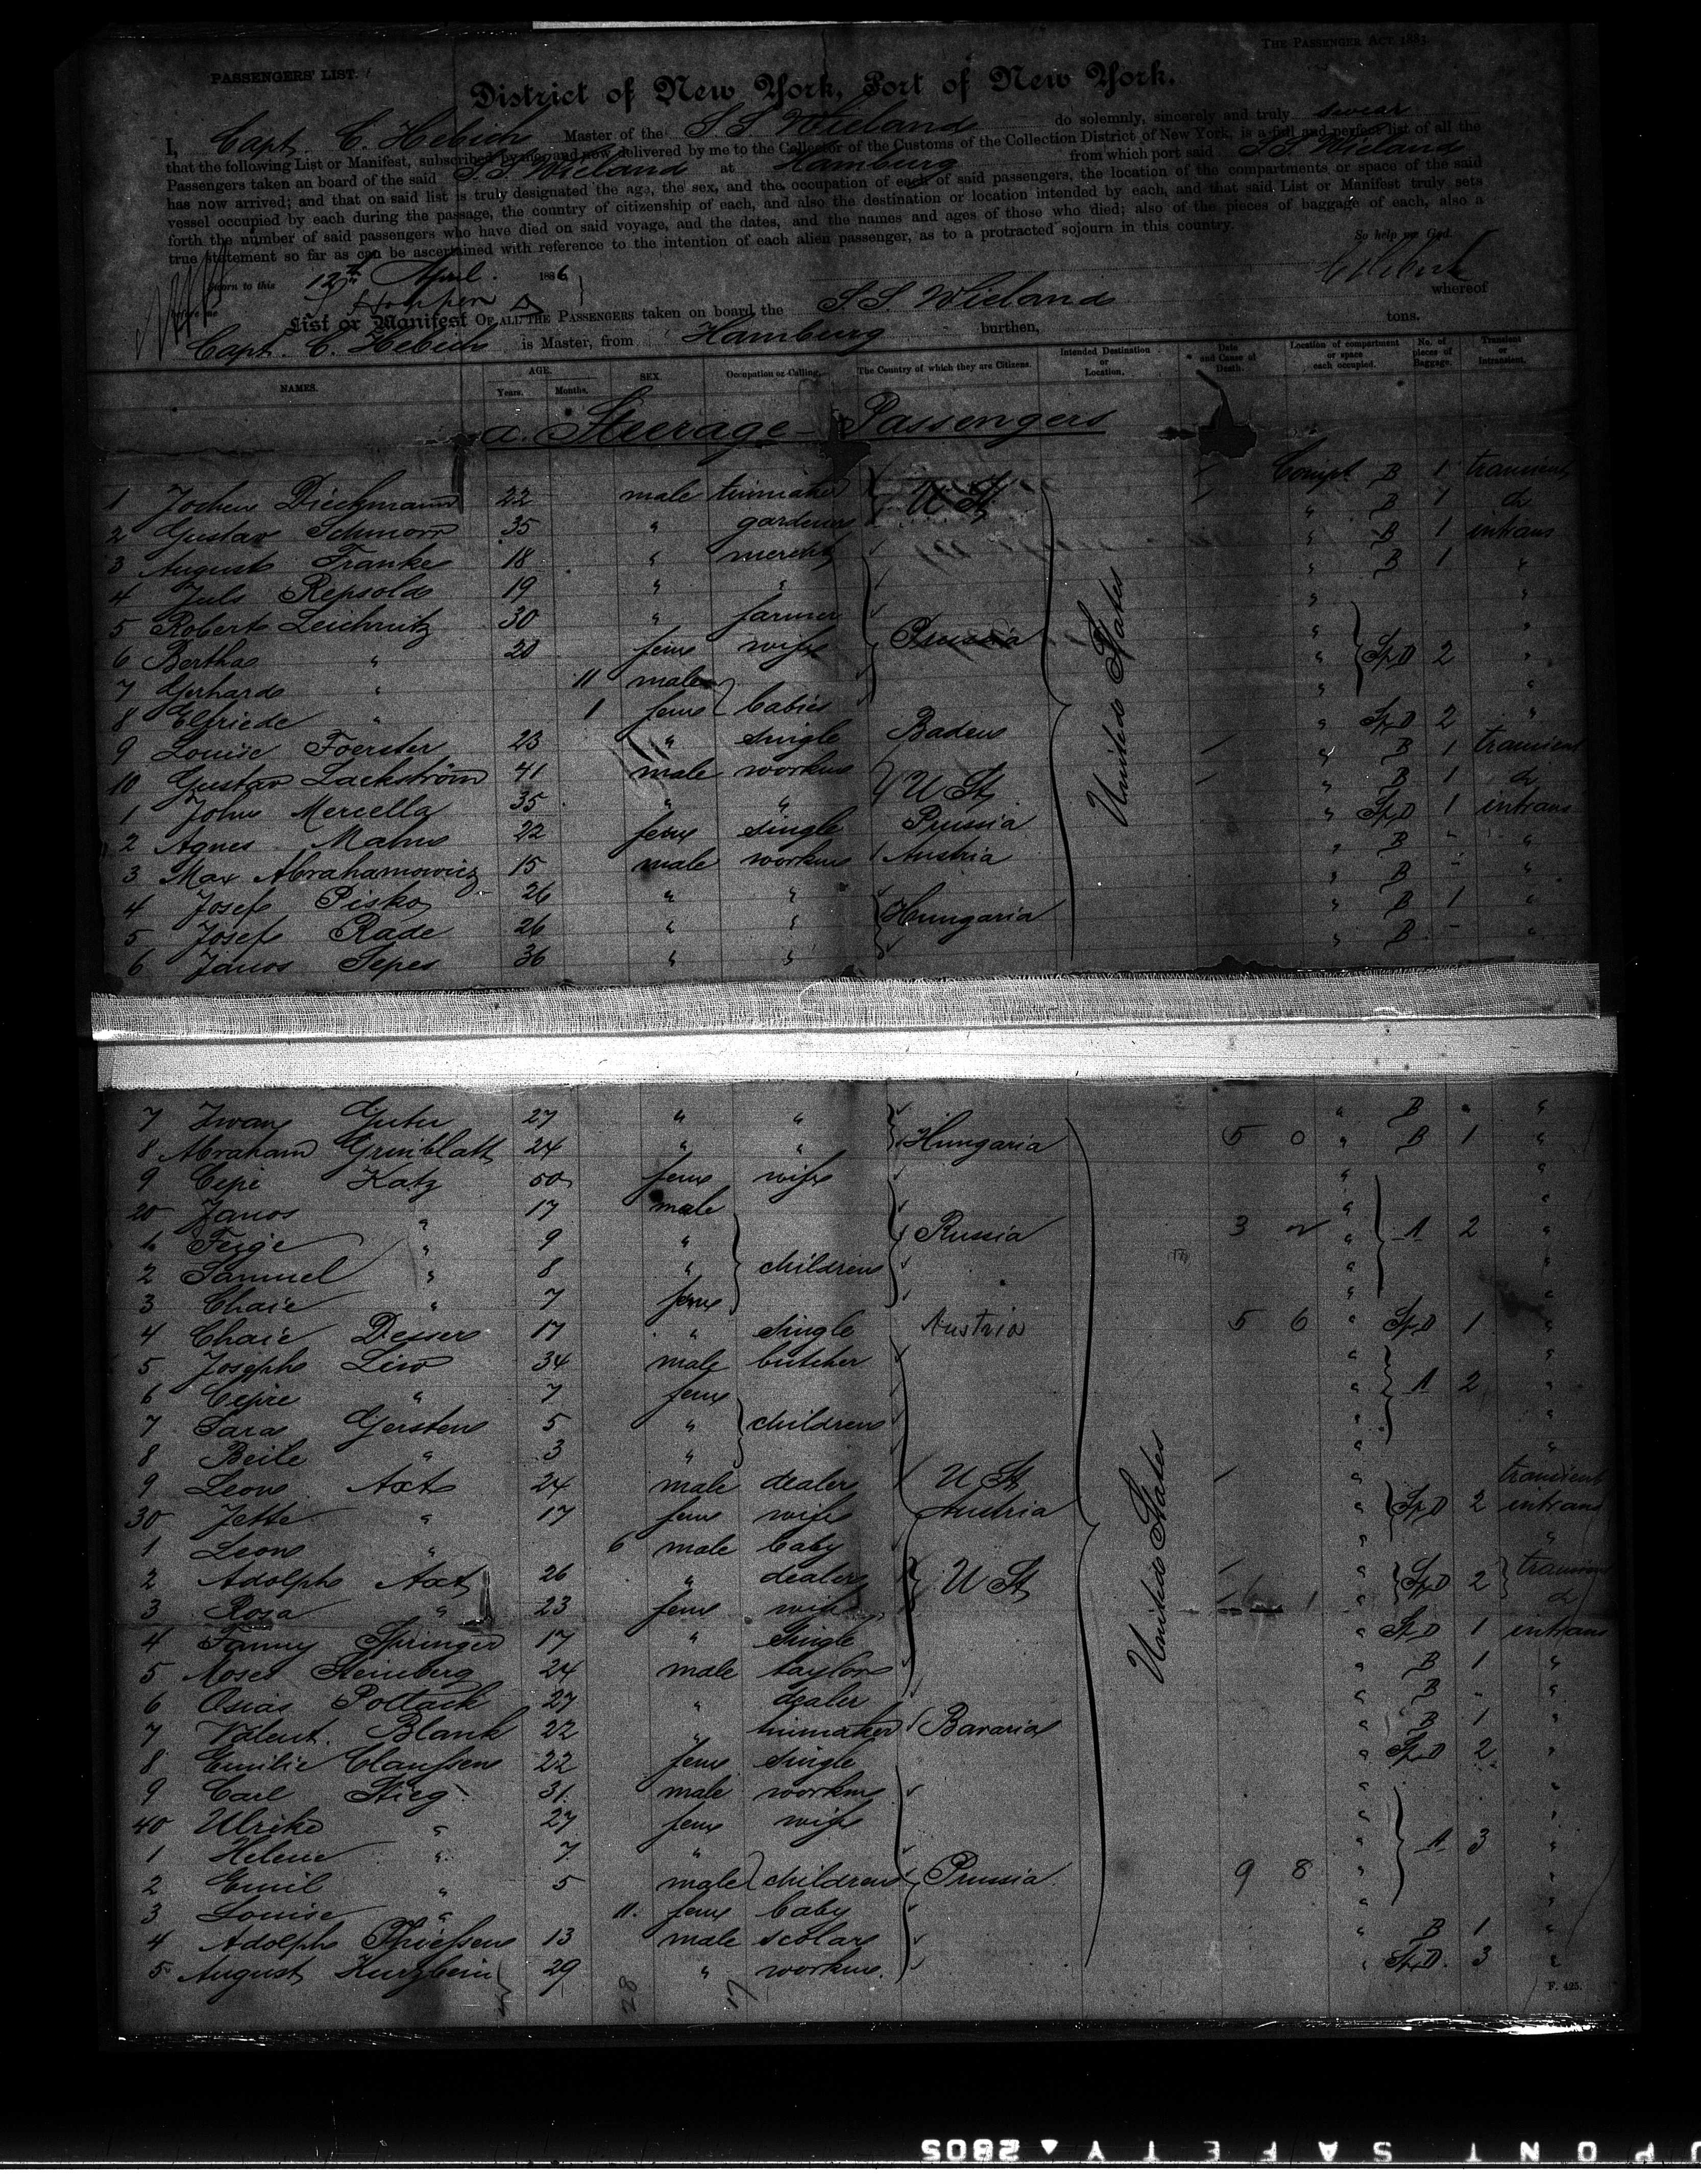 THE PASSENGER ACT 1883
PASSENGERS' LIST.
District of New York, Port of New York.
I, Capt. C. Hebich Master of the S.S. Wieland do solemnly, sincerely and truly swear
that the following List or Manifest, subscribed by me and now delivered by me to the Collector of the Customs of the Collection District of New York, is a full and perfect list of all the
Passengers taken on board of the said S.S. Wieland at Hamburg from which port said S.S. Wieland
has now arrived; and that on said list is truly designated the age, the sex, and the occupation of each of said passengers, the location of the compartments or space of the said
vessel occupied by each during the passage, the country of citizenship of each, and also the destination or location intended by each, and that said List or Manifest truly sets
forth the number of said passengers who have died on said voyage, and the dates, and the names and ages of those who died; also of the pieces of baggage of each, also a
true statement so far as can be ascertained with reference to the intention of each alien passenger, as to a protracted sojourn in this country.
So help me God.
Sworn to this 12th April 1886
before me
C Hebich
List or Manifest OF ALL THE PASSENGERS taken on board the S.S. Wieland whereof
Capt. C. Hebich is Master, from Hamburg burthen, tons.
NAMES. AGE. Years. Months. SEX. Occupation or Calling. The Country of which they are Citizens. Intended Destination or Location. Date and Cause of Death. Location of compartment or space each occupied. No. of pieces of Baggage. Transient or Intransient.
a. Steerage-Passengers
1 Jochen Dieckmann 22 male tinmaker U St. Compt. B 1 transient
2 Gustav Schmorr 35 " gardener " B 1 do
3 August Franke 18 " mercht " B 1 intrans
4 Juls Repsold 19 " " " B 1 "
5 Robert Leichnitz 30 " farmer Prussia " "
6 Bertha " 20 fem wife " Sp.D 2 "
7 Gerhard " 11 male babies " "
8 Elfriede " 1 fem " "
9 Louise Foerster 23 " single Baden " Sp.D 2 "
10 Gustav Lackström 41 male workm U St. " B 1 transient
1 John Mercella 35 " " " B 1 do
2 Agnes Mahn 22 fem single Prussia " Sp.D 1 intrans
3 Max Abrahamowicz 15 male workm Austria " B - "
4 Josef Pisko 26 " " Hungaria " B - "
5 Josef Rade 26 " " " B 1 "
6 Janos Sepes 36 " " " B - "
United States
7 Iwan Gutu 27 " " Hungaria " B " "
8 Abraham Grünblatt 24 " " 5 0 " B 1 "
9 Cipe Katz 50 fem wife " "
20 Janos " 17 male " "
1 Feige " 9 " children Russia 3 " A 2 "
2 Samuel " 8 " " "
3 Chaie " 7 fem " "
4 Chaie Desser 17 " single Austria 5 6 " Sp.D 1 "
5 Joseph Liw 34 male butcher " "
6 Cipre " 7 fem children " A 2 "
7 Sara Gersten 5 " " "
8 Beile " 3 " " "
9 Leon Axt 24 male dealer U St " transient
30 Jette " 17 fem wife Austria " Sp.D 2 intrans
1 Leon " 6 male baby " "
2 Adolph Axt 26 " dealer U St " Sp.D 2 transient
3 Rosa " 23 fem wife " do
4 Fanny Springer 17 " single " Sp.D 1 intrans
5 Moses Steinberg 24 male taylor " B 1 "
6 Osias Pollack 27 " dealer " B - "
7 Valent. Blank 22 " tinmaker Bavaria " B 1 "
8 Emilie Claussen 22 fem single " Sp.D 2 "
9 Carl Stieg 31 male workm " "
40 Ulrike " 27 fem wife " "
1 Helene " 7 " " A 3 "
2 Emil " 5 male children Prussia 9 8 " "
3 Louise " 11 fem baby " "
4 Adolph Thiessen 13 male scolar " B 1 "
5 August Kurzbein 29 " workm. " Sp.D. 3 "
United States
28 17
F. 425.
DUPONT SAFETY 2805